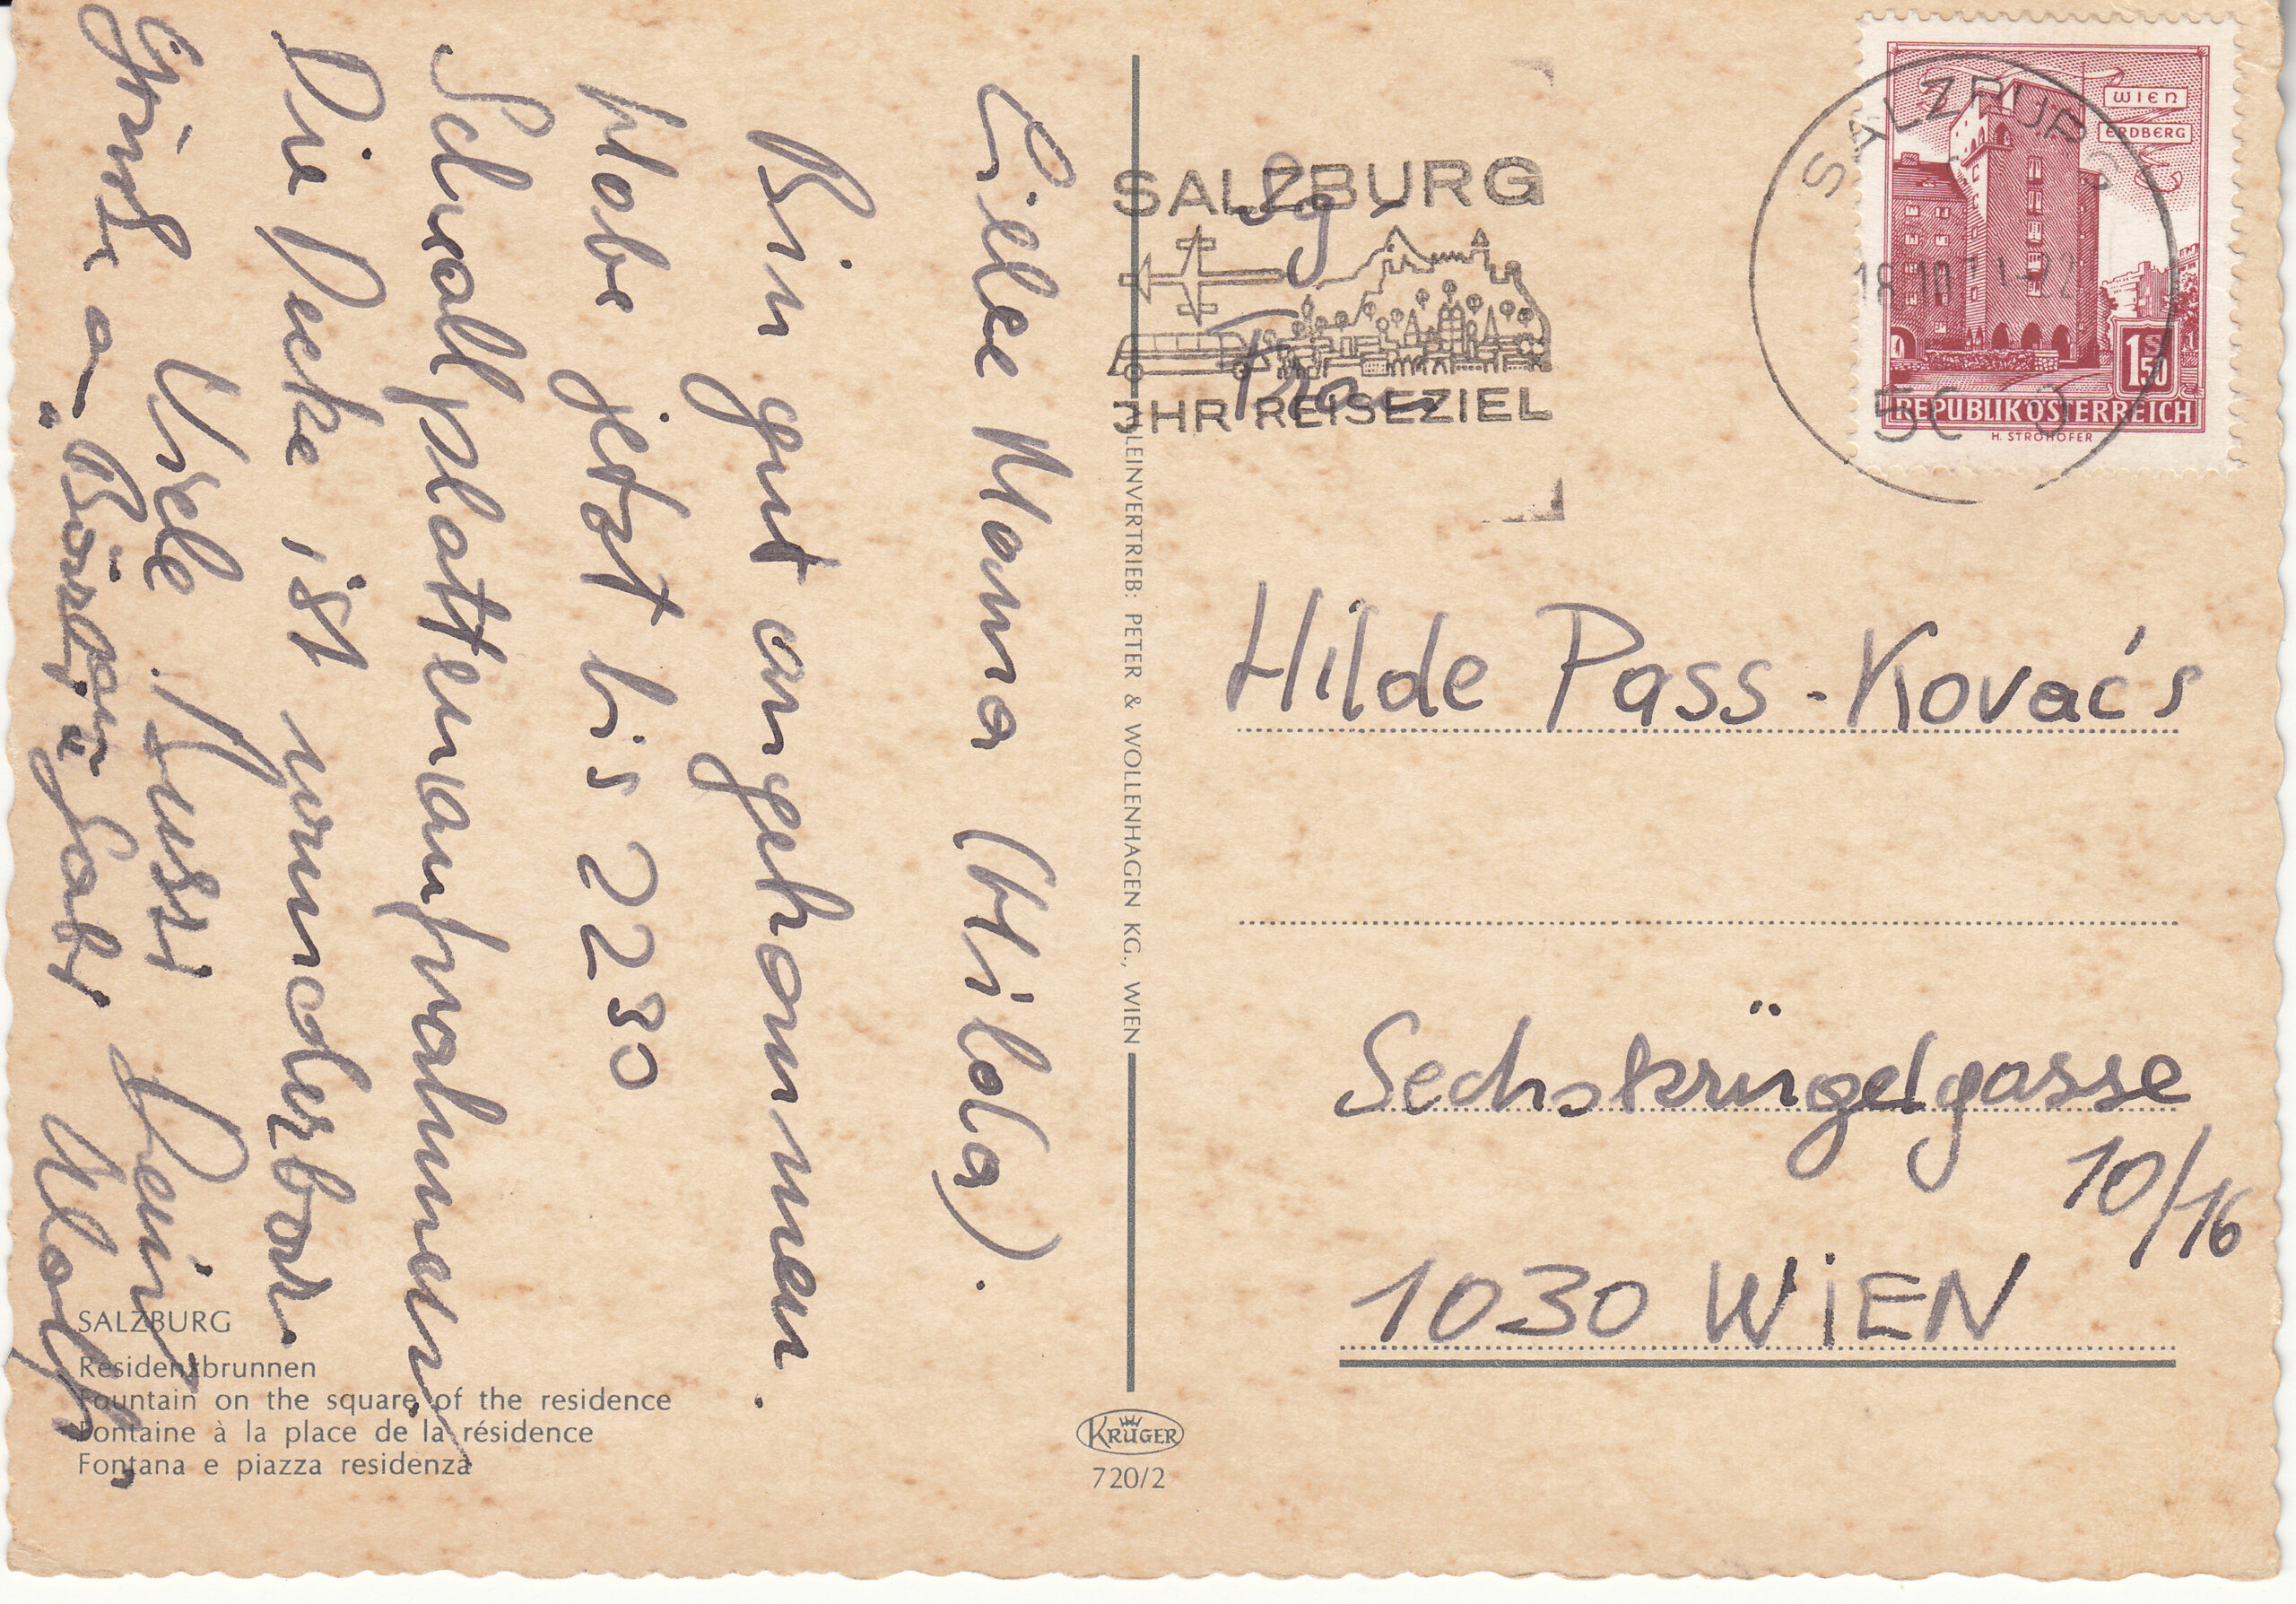 Liebe Mama (Hilda).
Bin gut angekommen.
Habe jetzt bis 22 30
Schallplattenaufnahmen
Die Decke ist wunderbar.
Viele Bussi Dein
Grüße a Gabi Wolf
SALZBURG
Residenzbrunnen
Fountain on the square of the residence
Fontaine à la place de la résidence
Fontana e piazza residenza
ALLEINVERTRIEB: PETER & WOLLENHAGEN KG., WIEN
KRÜGER
720/2
SALZBURG
IHR REISEZIEL
SALZBURG
5C 3
WIEN
ERDBERG
S
1.50
REPUBLIK ÖSTERREICH
H. STROHOFER
Sg.
Frau
Hilde Pass-Kovács
Sechskrügelgasse
10/16
1030 WiEN